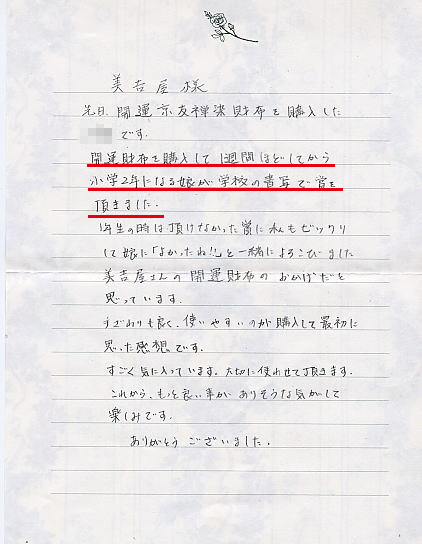 美吉屋様
先日、開運京友禅染財布を購入した
です。
開運財布を購入して1週間ほどしてから
小学2年になる娘が学校の書写で賞を
頂きました。
1年生の時は頂けなかった賞に私もビックリ
して娘に「よかったね!!」と一緒によろこびました
美吉屋さんの開運財布のおかげだと
思っています。
手ざわりも良く、使いやすいのが購入して最初に
思った感想です。
すごく気に入っています。大切に使わせて頂きます。
これから、もっと良い事がありそうな気がして
楽しみです。
ありがとうございました。